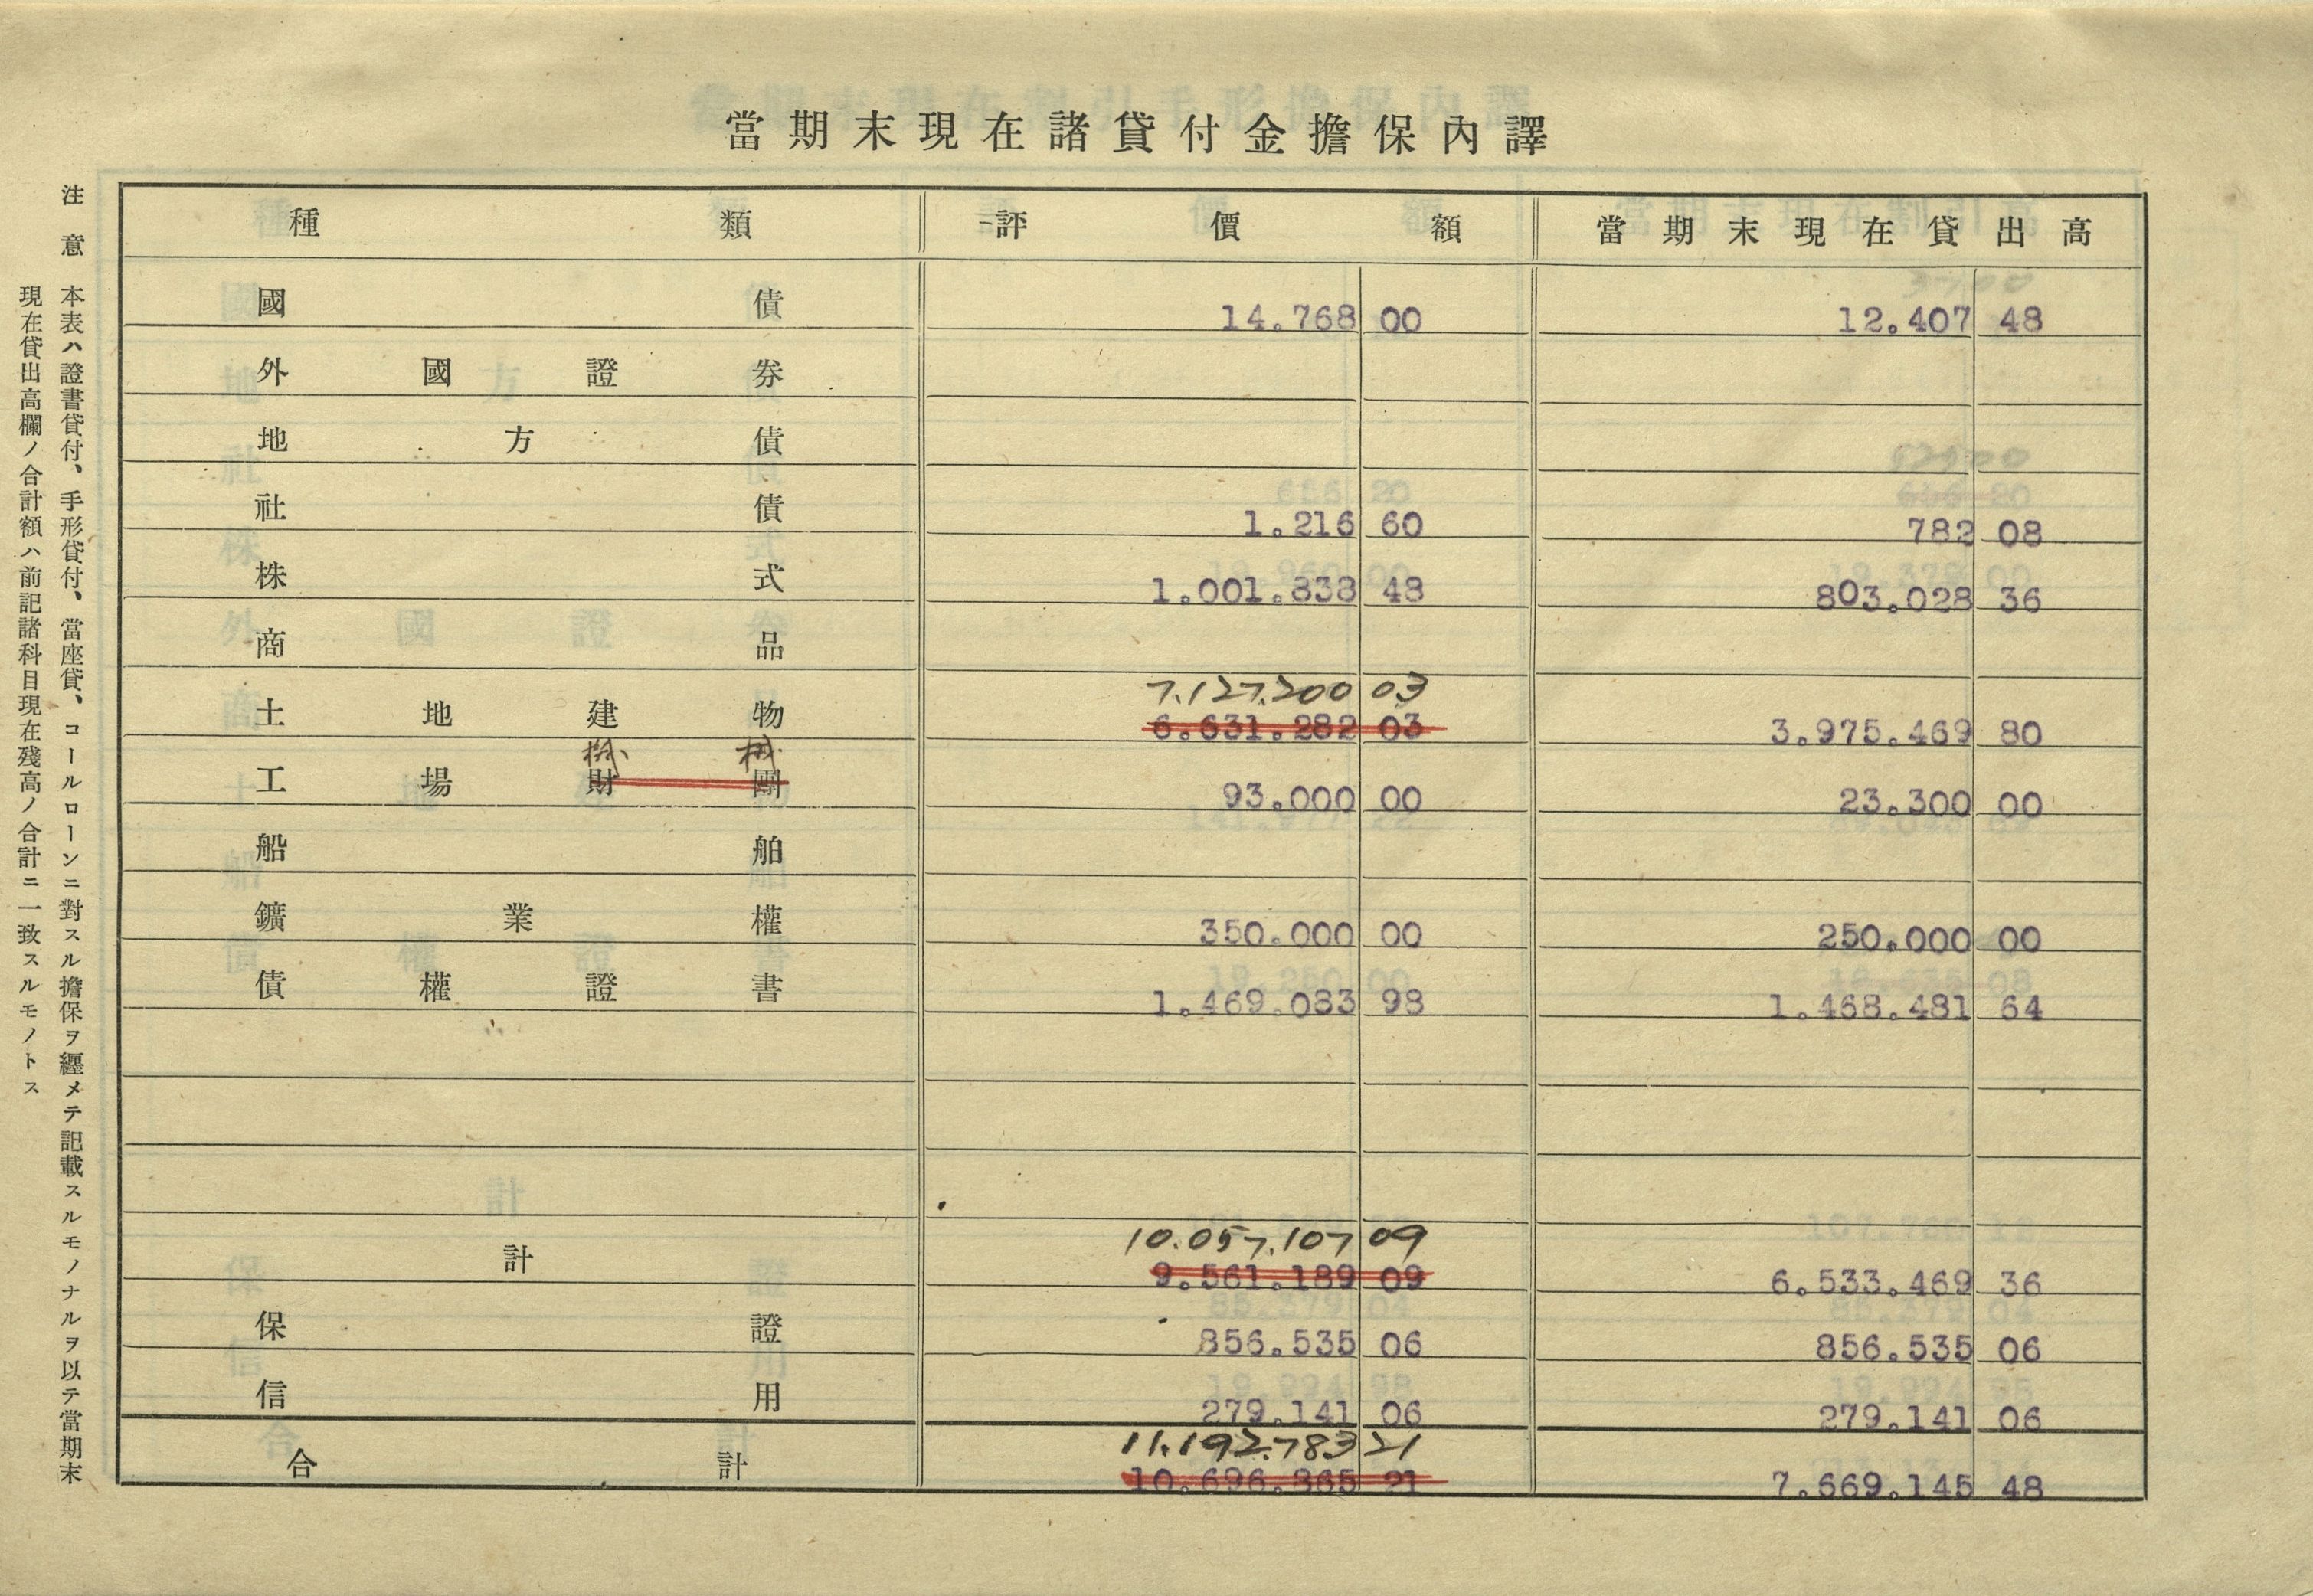 當期末現在諸貸付金擔保內譯
種類 評價額 當期末現在貸出高
國債 14.768 00 12.407 48
外國證券
地方債
社債 1.216 60 782 08
株式 1.001.838 48 803.028 36
商品
7.127.200 03
土地建物 6.631.282 03 3.975.469 80
機械
工場財團 93.000 00 23.300 00
船舶
鑛業權 350.000 00 250.000 00
債權證書 1.469.083 98 1.468.481 64
10.057.107 09
計 9.561.189 09 6.533.469 36
保證 856.535 06 856.535 06
信用 279.141 06 279.141 06
11.192.783 21
合計 10.696.865 21 7.669.145 48
注意 本表ハ證書貸付、手形貸付、當座貸、コールローンニ對スル擔保ヲ纒メテ記載スルモノナルヲ以テ當期末
現在貸出高欄ノ合計額ハ前記諸科目現在殘高ノ合計ニ一致スルモノトス